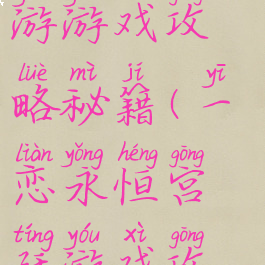 游游戏攻
lüè mì jí yī
略秘籍(一
liàn yǒng héng gōng
恋永恒宫
tíng yóu xì gōng
游戏攻